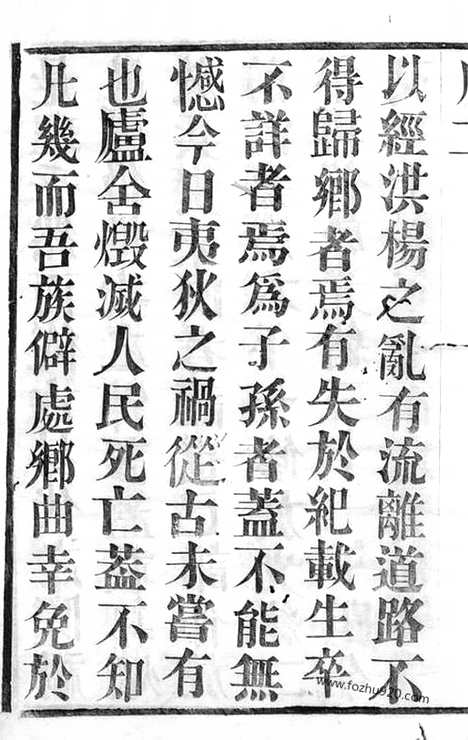 以經洪楊之亂有流離道路不
得歸鄉者焉有失於紀載生卒
不詳者焉為子孫者蓋不能無
憾今日夷狄之禍從古未嘗有
也廬舍燬滅人民死亡蓋不知
凡幾而吾族僻處鄉曲幸免於
www.fozhu920.com